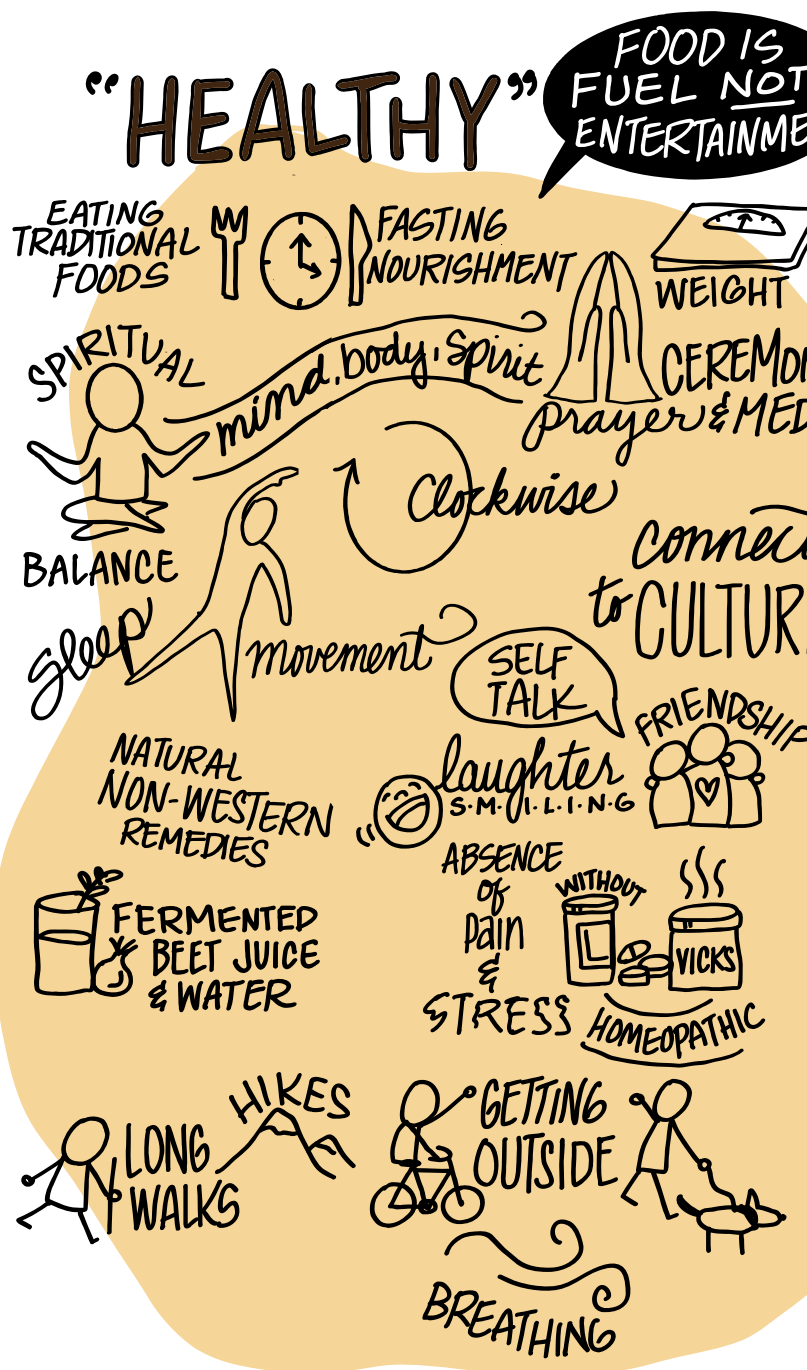 "HEALTHY"
FOOD IS
FUEL NOT
ENTERTAINME
EATING
TRADITIONAL
FOODS
FASTING
NOURISHMENT
WEIGHT
SPIRITUAL
mind, body, spirit
CEREMO
prayer & MED
Clockwise
BALANCE
connec
to CULTUR
sleep
movement
SELF
TALK
FRIENDSHIP
NATURAL
NON-WESTERN
REMEDIES
laughter
S·M·I·L·I·N·G
ABSENCE
of
Pain
&
STRESS
WITHOUT
VICKS
HOMEOPATHIC
FERMENTED
BEET JUICE
& WATER
HIKES
LONG
WALKS
GETTING
OUTSIDE
BREATHING